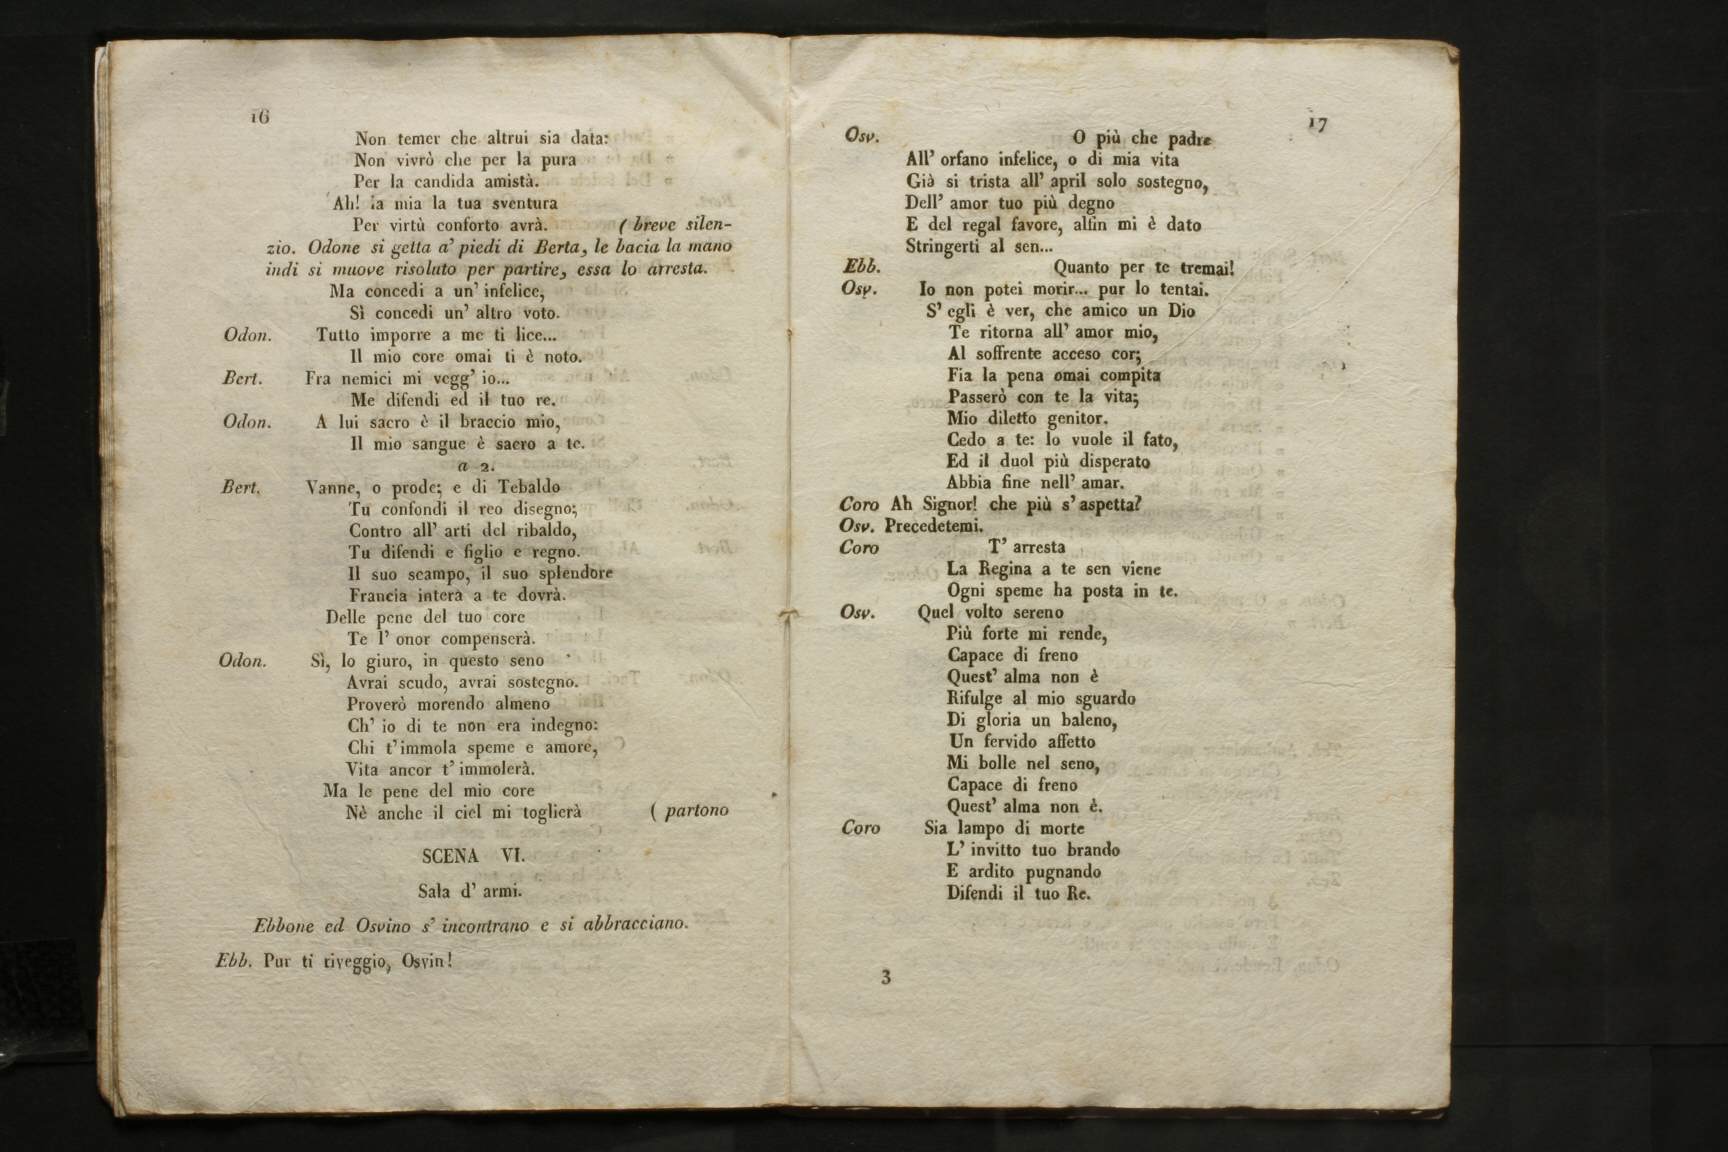 16
Non temer che altrui sia data:
Non vivrò che per la pura
Per la candida amistà.
Ah! la mia la tua sventura
Per virtù conforto avrà. ( breve silen-
zio. Odone si getta a' piedi di Berta, le bacia la mano
indi si muove risoluto per partire, essa lo arresta.
Ma concedi a un' infelice,
Sì concedi un' altro voto.
Odon. Tutto imporre a me ti lice...
Il mio core omai ti è noto.
Bert. Fra nemici mi vegg' io...
Me difendi ed il tuo re.
Odon. A lui sacro è il braccio mio,
Il mio sangue è sacro a te.
a 2.
Bert. Vanne, o prode; e di Tebaldo
Tu confondi il reo disegno;
Contro all' arti del ribaldo,
Tu difendi e figlio e regno.
Il suo scampo, il suo splendore
Francia intera a te dovrà.
Delle pene del tuo core
Te l' onor compenserà.
Odon. Sì, lo giuro, in questo seno
Avrai scudo, avrai sostegno.
Proverò morendo almeno
Ch' io di te non era indegno:
Chi t' immola speme e amore,
Vita ancor t' immolerà.
Ma le pene del mio core
Nè anche il ciel mi toglierà ( partono
SCENA VI.
Sala d' armi.
Ebbone ed Osvino s' incontrano e si abbracciano.
Ebb. Pur ti riveggio, Osvin!
17
Osv. O più che padre
All' orfano infelice, o di mia vita
Già si trista all' april solo sostegno,
Dell' amor tuo più degno
E del regal favore, alfin mi è dato
Stringerti al sen...
Ebb. Quanto per te tremai!
Osv. Io non potei morir... pur lo tentai.
S' egli è ver, che amico un Dio
Te ritorna all' amor mio,
Al soffrente acceso cor;
Fia la pena omai compita
Passerò con te la vita;
Mio diletto genitor.
Cedo a te: lo vuole il fato,
Ed il duol più disperato
Abbia fine nell' amar.
Coro Ah Signor! che più s' aspetta?
Osv. Precedetemi.
Coro T' arresta
La Regina a te sen viene
Ogni speme ha posta in te.
Osv. Quel volto sereno
Più forte mi rende,
Capace di freno
Quest' alma non è
Rifulge al mio sguardo
Di gloria un baleno,
Un fervido affetto
Mi bolle nel seno,
Capace di freno
Quest' alma non è.
Coro Sia lampo di morte
L' invitto tuo brando
E ardito pugnando
Difendi il tuo Re.
3